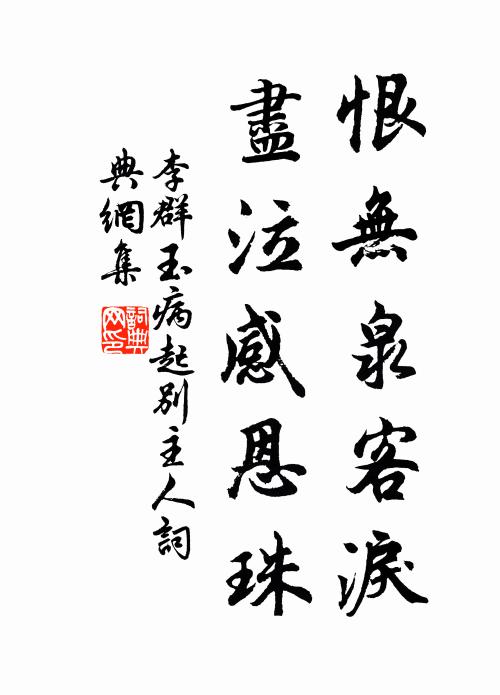 恨無泉客淚
盡泣感恩珠
李群玉病起別主人詞
典網集
詞典
网印